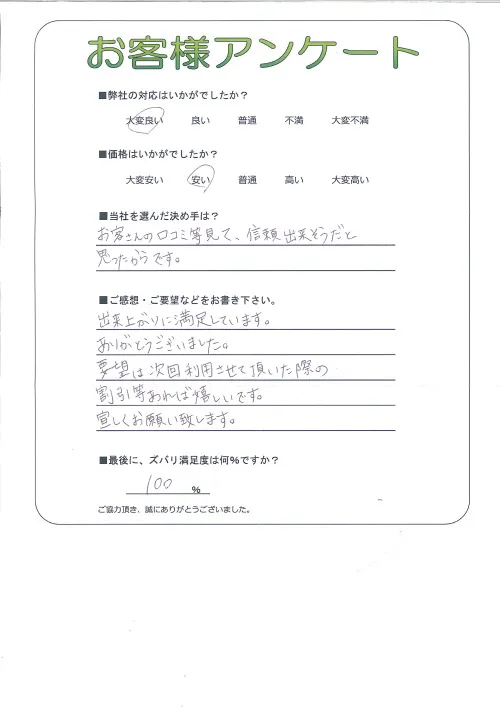 お客様アンケート
■弊社の対応はいかがでしたか？
大変良い 良い 普通 不満 大変不満
■価格はいかがでしたか？
大変安い 安い 普通 高い 大変高い
■当社を選んだ決め手は？
お客さんの口コミ等見て、信頼出来そうだと
思ったからです。
■ご感想・ご要望などをお書き下さい。
出来上がりに満足しています。
ありがとうございました。
要望は次回利用させて頂いた際の
割引等あれば嬉しいです。
宜しくお願い致します。
■最後に、ズバリ満足度は何％ですか？
100 ％
ご協力頂き、誠にありがとうございました。